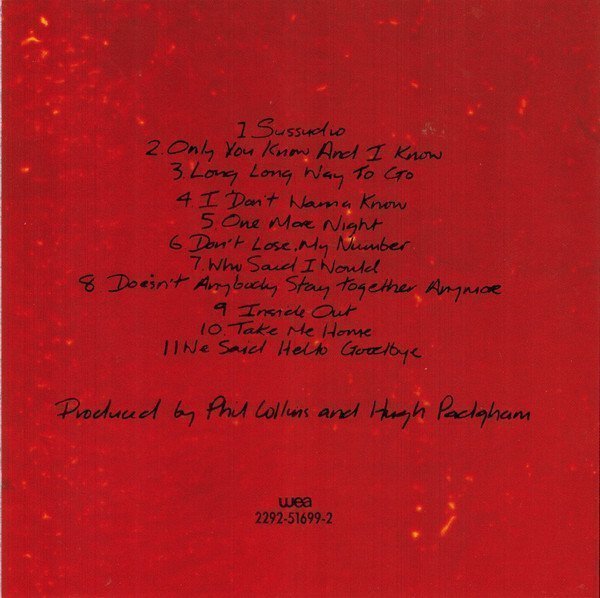 1 Sussudio
2. Only You Know And I Know
3. Long Long Way To Go
4 I Don't Wanna Know
5 One More Night
6 Don't Lose My Number
7. Who Said I Would
8 Doesn't Anybody Stay Together Anymore
9 Inside Out
10. Take Me Home
11 We Said Hello Goodbye
Produced by Phil Collins and Hugh Padgham
wea
2292-51699-2